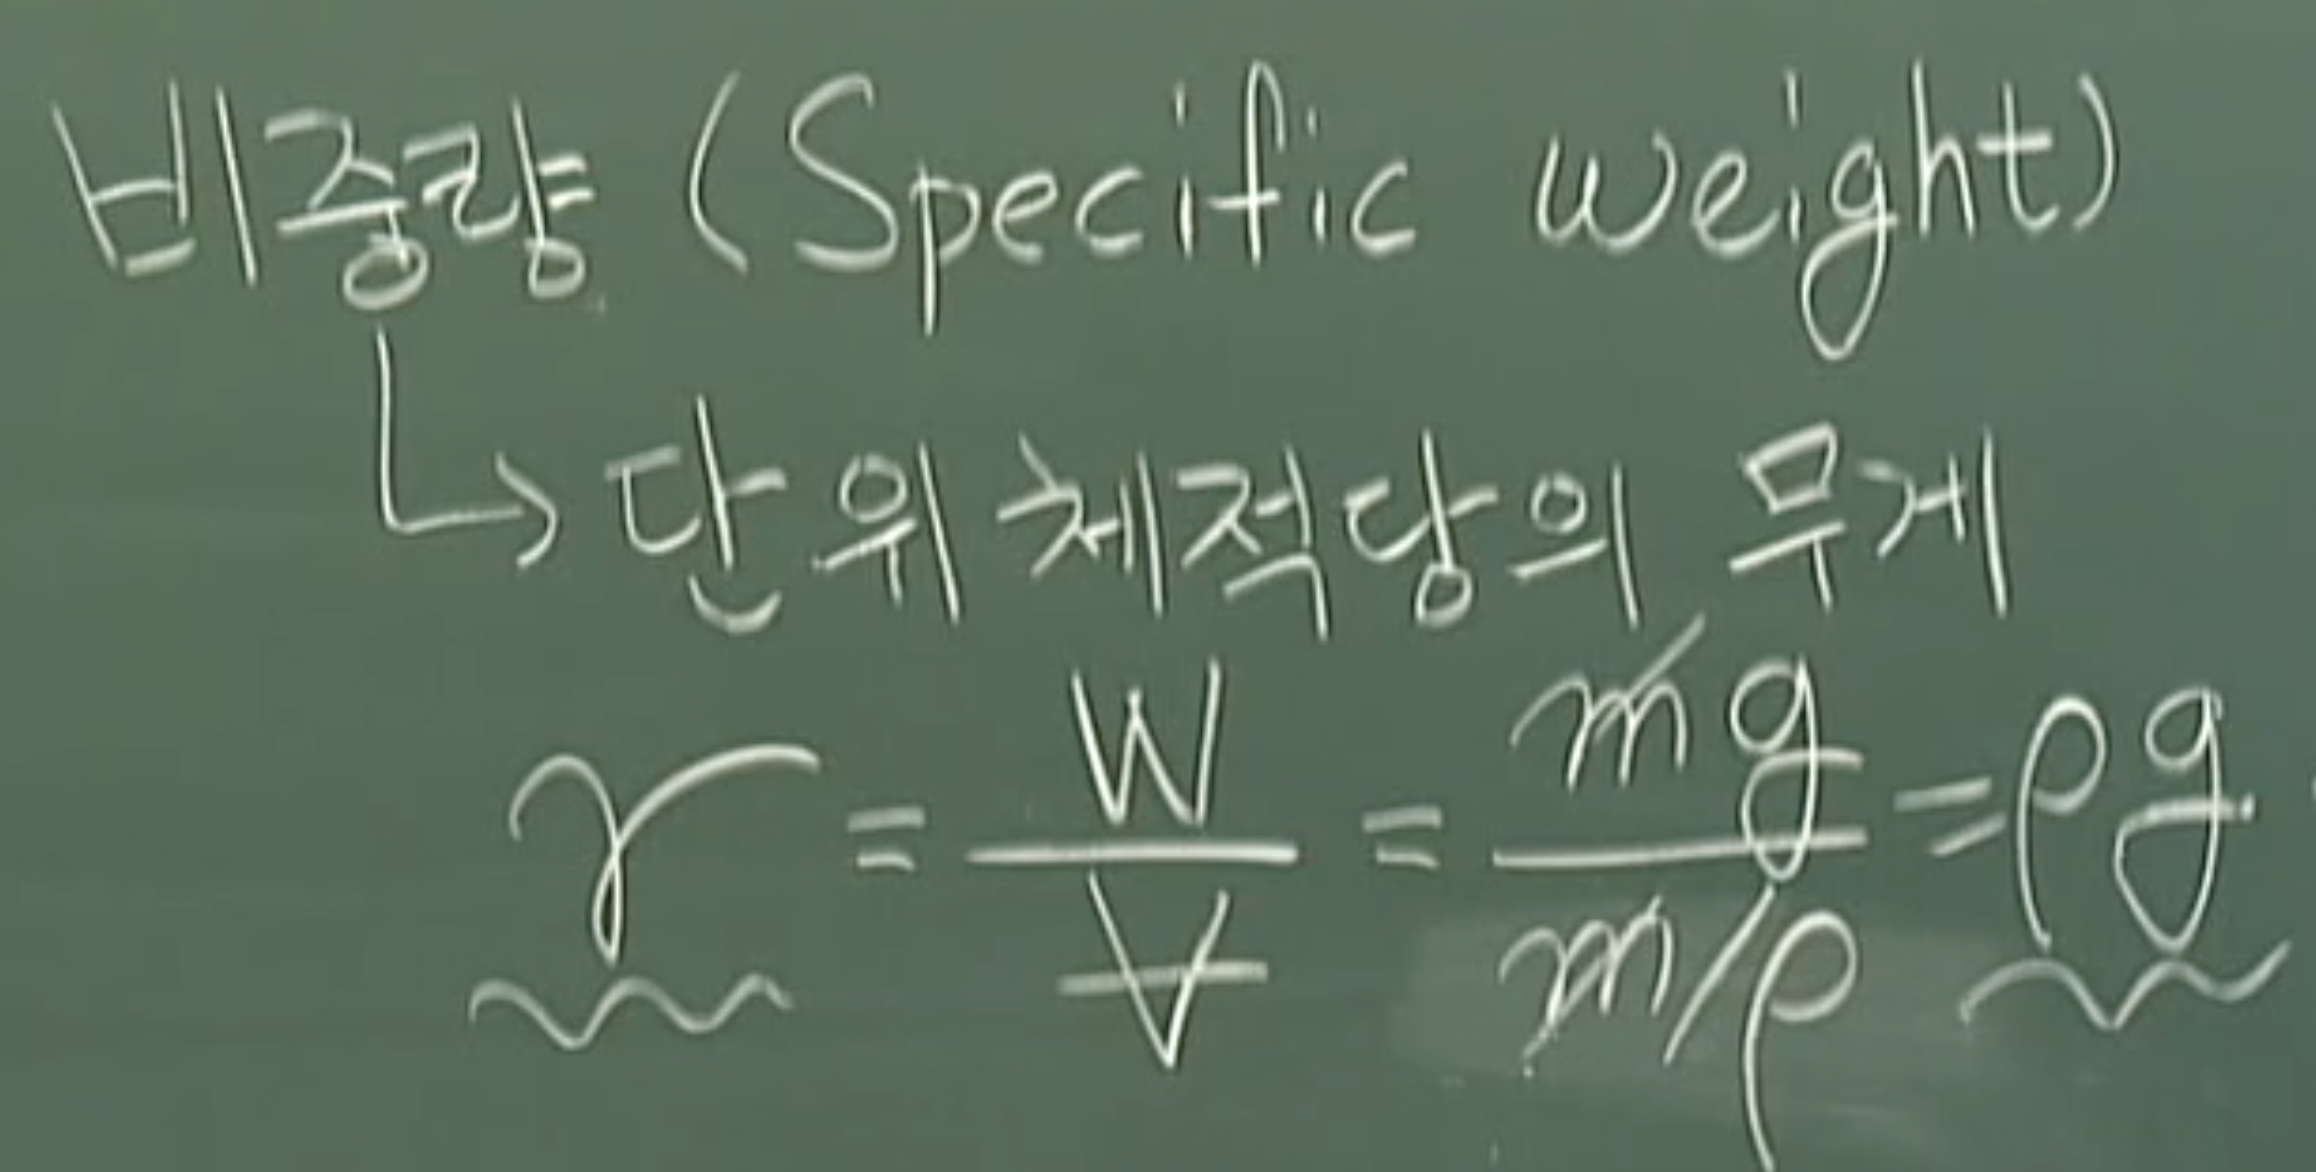 비중량 (Specific weight)
↳ 단위체적당의 무게
γ = W/V = mg/(m/ρ) = ρg.